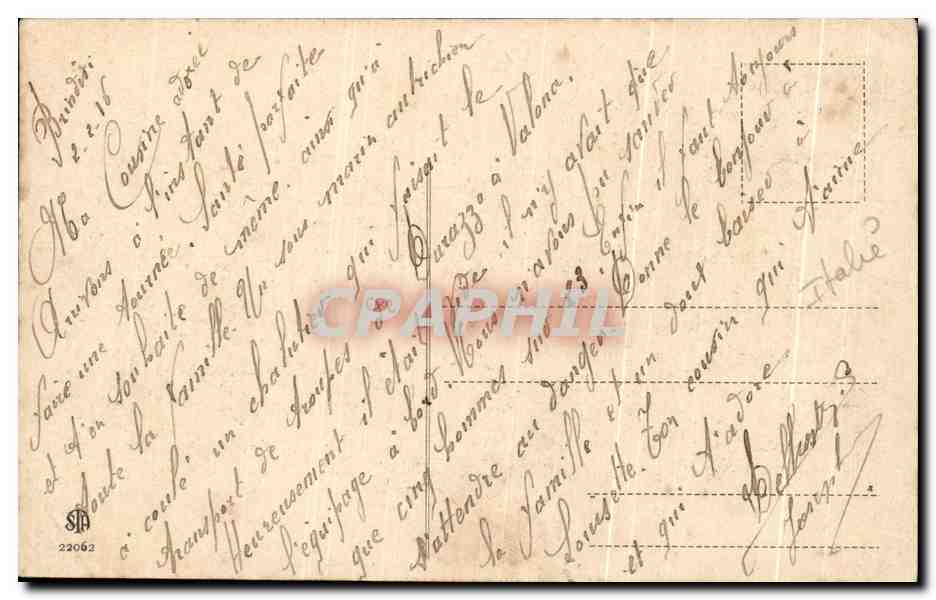 Brindisi
2-2-16
Ma Cousine adorée
Arrivons à l'instant de
faire une tournée. Santé parfaite
et t'en souhaite de même. ainsi qu'à
toute la famille. Un sous marin autrichien
à coulé un chalutier qui faisait le
transport de troupes de Durazzo à Valona.
Heureusement il était vide il n'y avait que
l'équipage à bord. Nous n'avons pu sauver
que cinq hommes sur 23 Enfin il faut toujours
s'attendre au danger. Donne le bonjour à
la famille et un doux baiser à
Lousette. Ton cousin qui t'aime
et qui t'adore
Italie
CPAPHIL
STA
22062